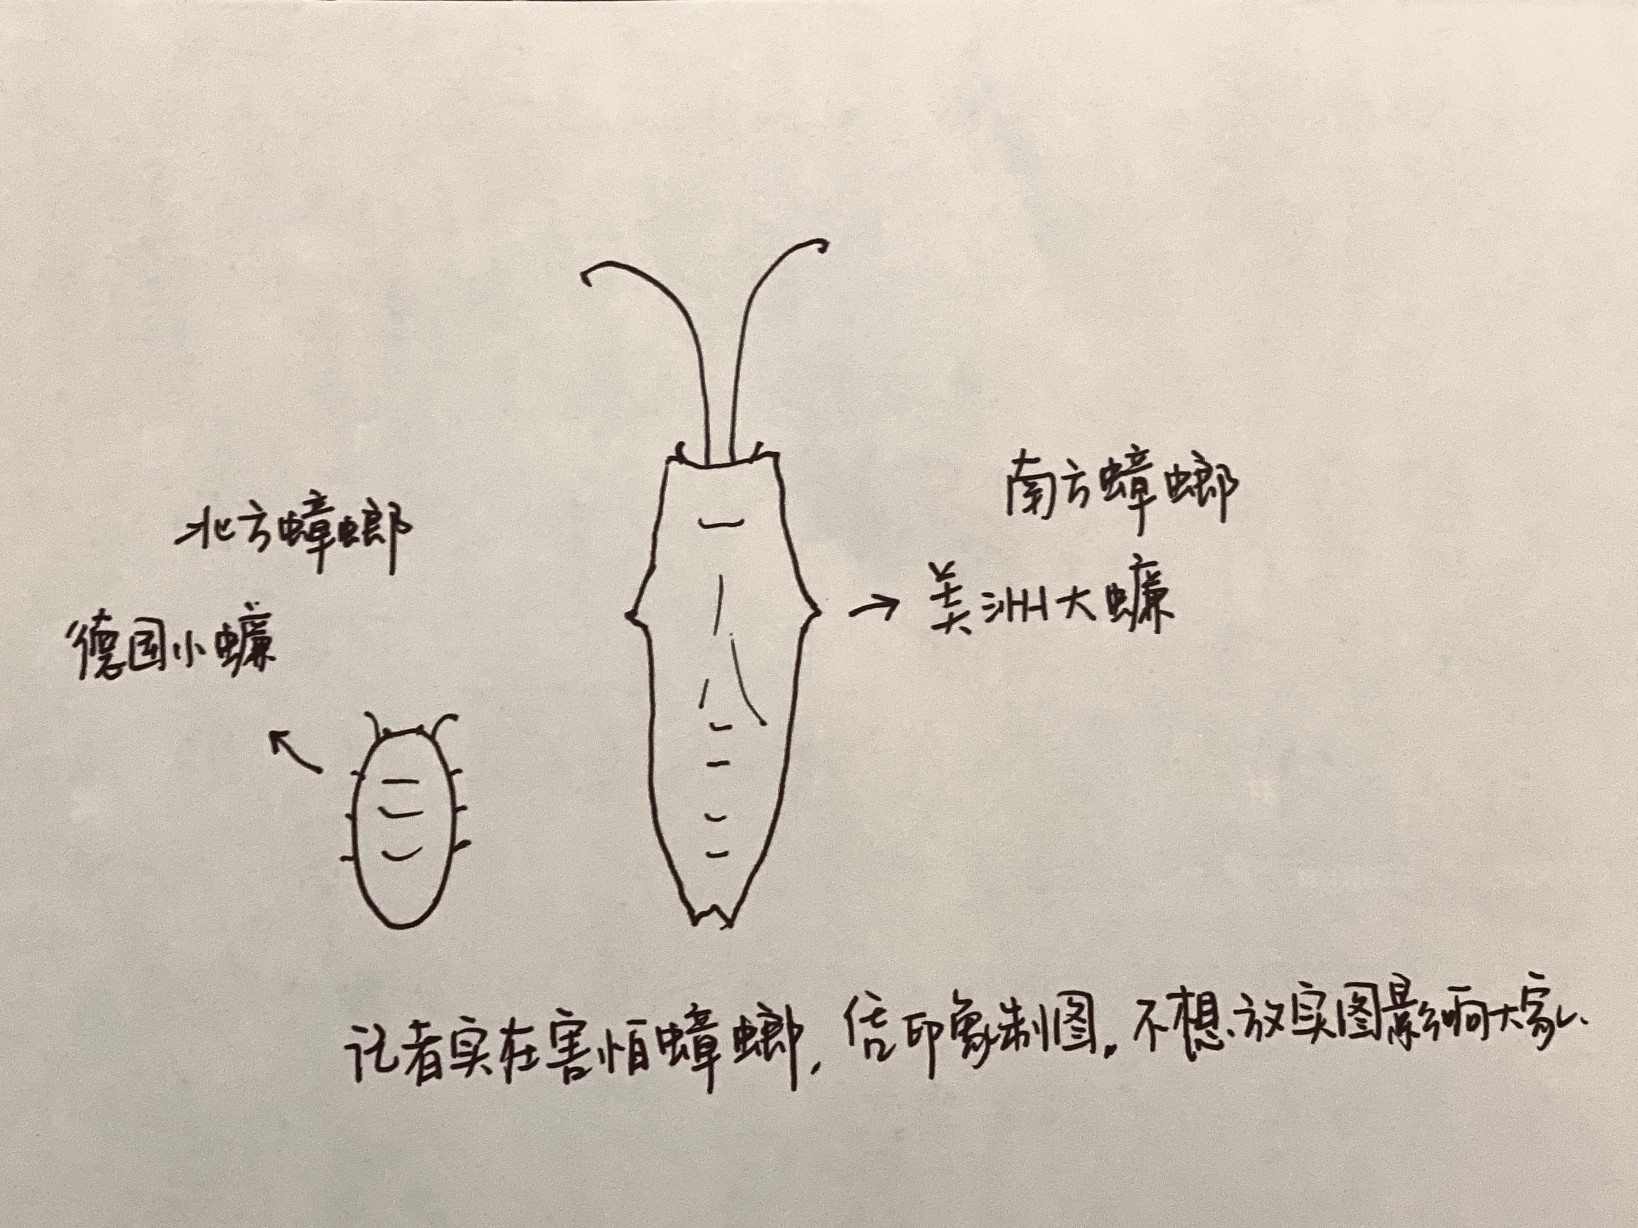 北方蟑螂
德国小蠊
南方蟑螂
美洲大蠊
记者实在害怕蟑螂，凭印象制图。不想放实图影响大家